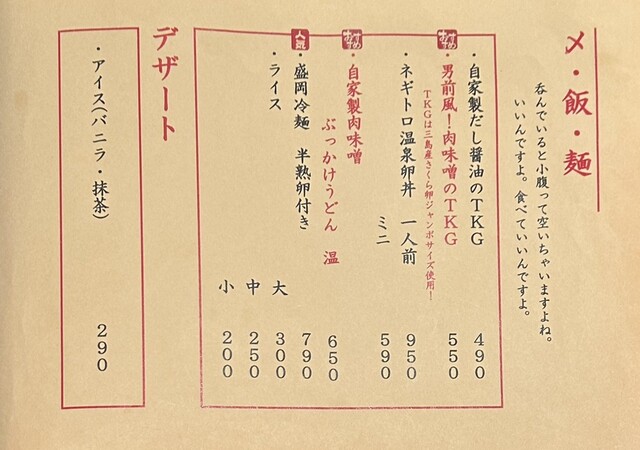 〆・飯・麺
呑んでいると小腹って空いちゃいますよね。
いいんですよ。食べていいんですよ。
・自家製だし醤油のTKG 490
おすすめ
・男前風！肉味噌のTKG 550
TKGは三島産さくら卵ジャンボサイズ使用！
・ネギトロ温泉卵丼 一人前 950
ミニ 590
おすすめ
・自家製肉味噌
ぶっかけうどん 温 650
人気
・盛岡冷麺 半熟卵付き 790
・ライス 大 300
中 250
小 200
デザート
・アイス（バニラ・抹茶） 290